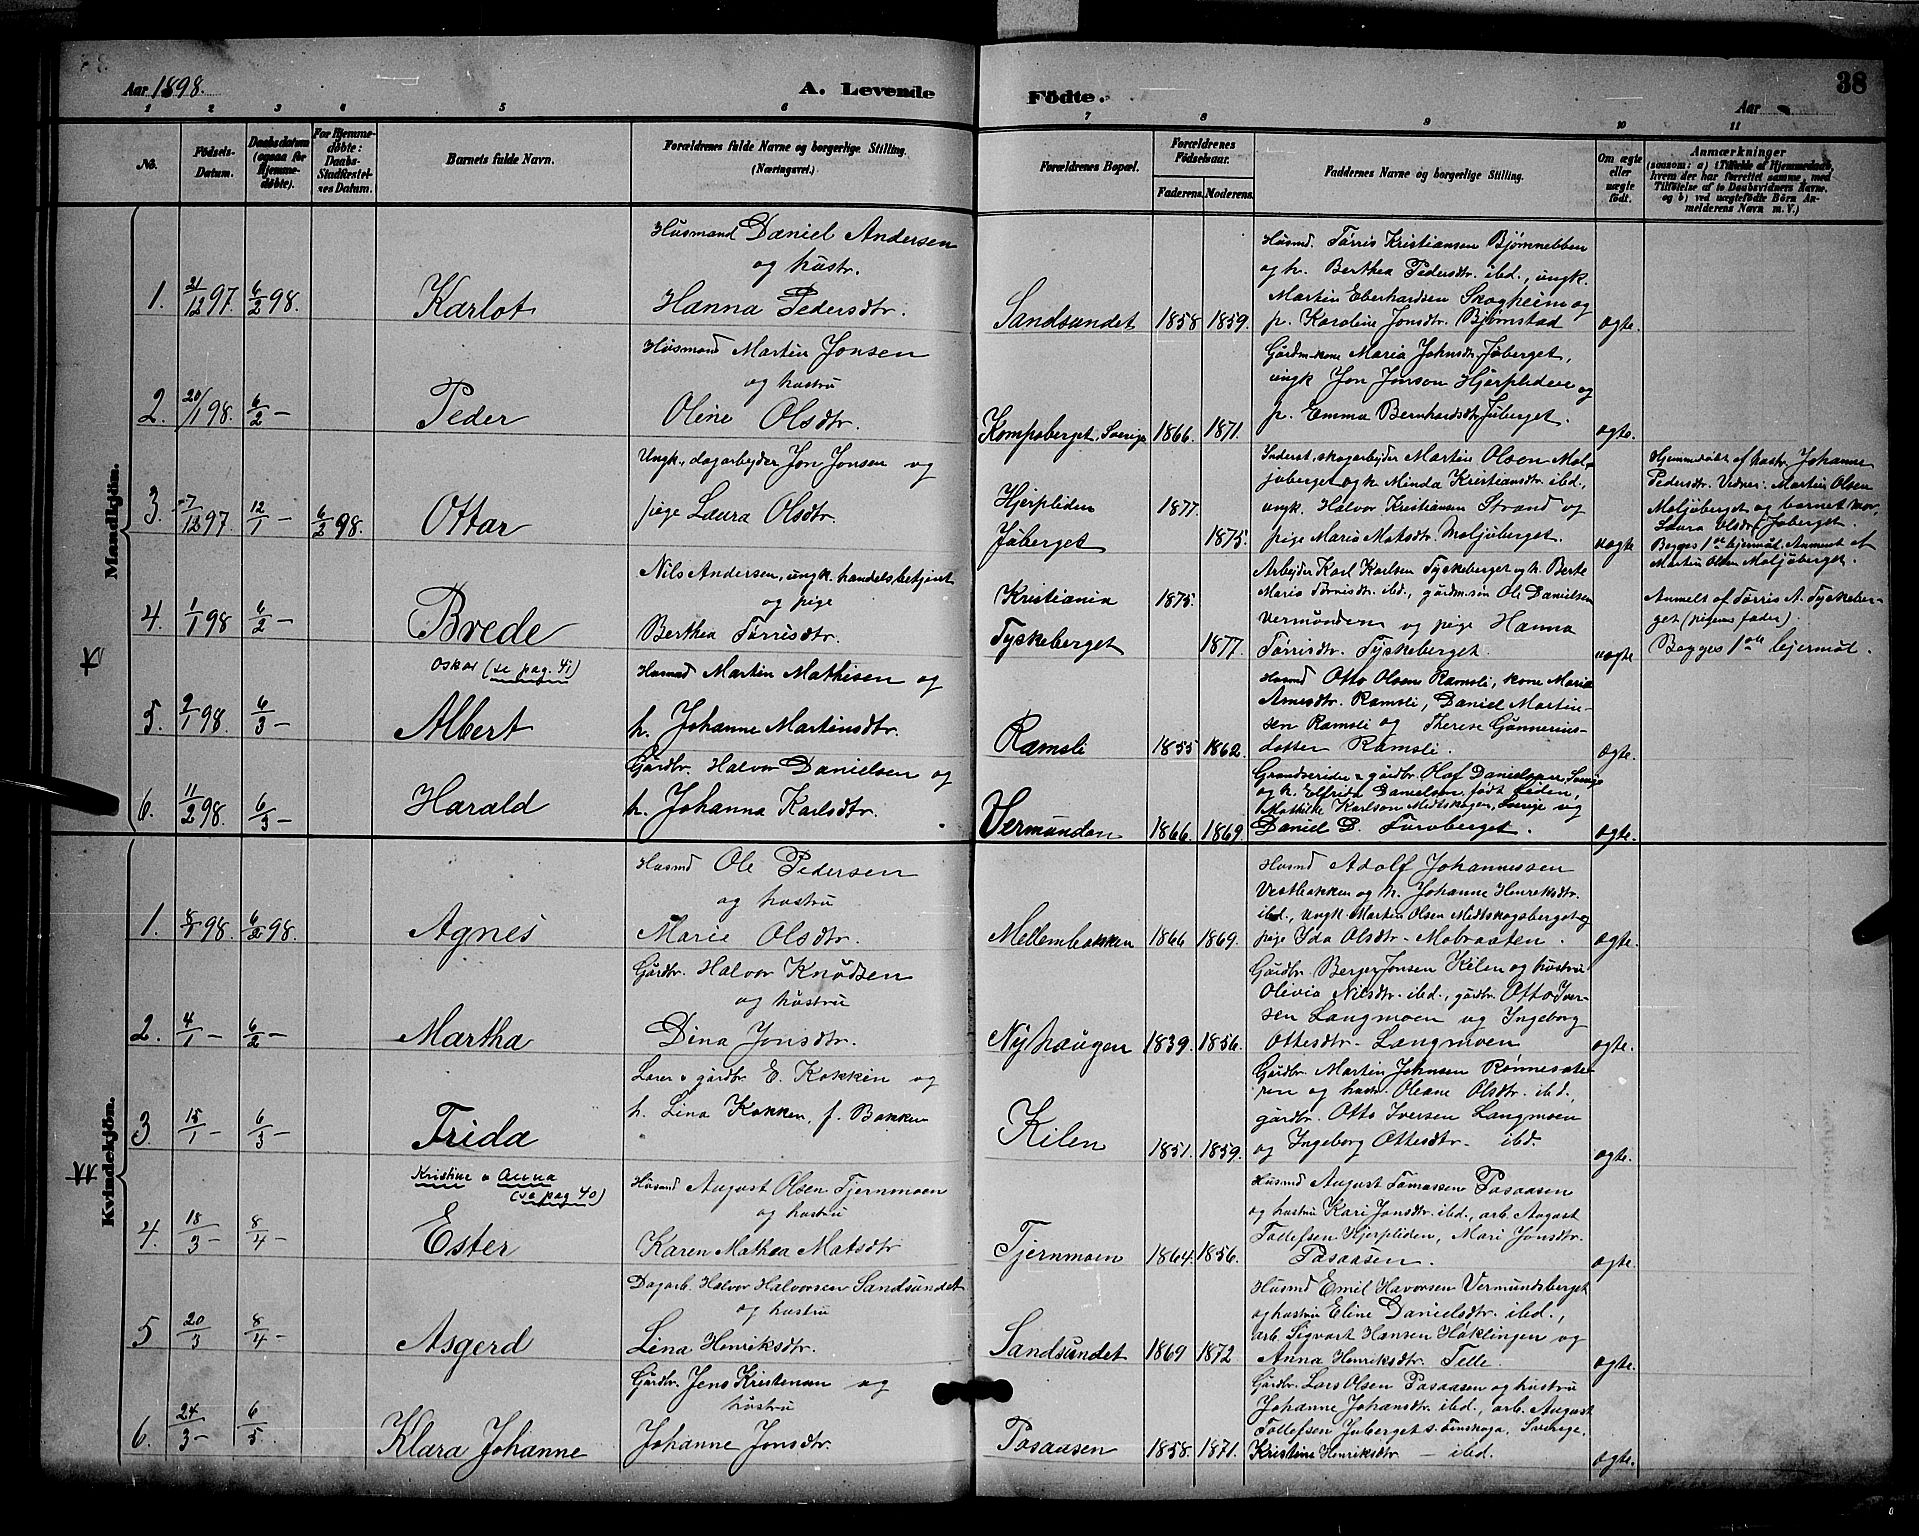 Aar 1898.
A. Levende
Födte.
38
Aar
1 2 3 4 5 6 7 8 9 10 11
No.
Födsels-
Datum.
Daabsdatum
(ogsaa for
Hjemme-
døbte).
For Hjemme-
døbte:
Daabs-
Stadfæstel-
ses Datum.
Barnets fulde Navn.
Forældrenes fulde Navne og borgerlige Stilling.
(Næringsvei.)
Forældrenes Bopæl.
Forældrenes
Födselsaar.
Faderens. Moderens.
Faddernes Navne og borgerlige Stilling.
Om ægte
eller
uægte
födt.
Anmærkninger
(saasom: a) i Tilfælde af Hjemmedaab,
hvem der har forrettet samme, med
Tilföielse af to Daabsvidners Navne,
og b) ved uægtefödte Börn An-
melderens Navn m. V.)
Mandkjön.
1. 21/12 97. 6/2 98.
Karlot
Husmand Daniel Andersen
og hustr.
Hanna Pedersdtr.
Sandsundet 1858 1859.
Husmd. Tørris Kristiansen Bjømnebben
og h. Berthea Pedersdtr. ibd., ungk.
Martin Eberhardsen Skogheim og
p. Karoline Jonsdtr. Bjørnstad
ægte.
2. 20/1 98. 6/2 -
Peder
Husmand Martin Jonsen
og hustru
Oline Olsdtr.
Kompsberget, Sverige 1866. 1871.
Gårdm-kone Maria Johnsdtr. Jøberget,
ungk Jon Jonson Hjerpliden og
p. Emma Bernhardsdtr. Jøberget.
ægte.
3. -7/12 97. 12/1 - 6/2 98.
Ottar
Ungk., dagarbejder Jon Jonsen og
pige Laura Olsdtr.
Hjerpliden 1877.
Jøberget 1875.
Inderst, skogarbejder Martin Olsen Mal-
jøberget og k. Minda Kristiansdtr. ibd.,
ungk. Halvor Kristiansen Strand og
pige Maria Matsdtr. Maljøberget.
uægte
Hjemmedøbt af hustr. Johanne
Pedersdtr. Vidner: Martin Olsen
Maljøberget og barnets mor,
Laura Olsdtr. Jøberget.
Begges 1ste lejermål. Anmeldt af
Martin Olsen Maljøberget.
4. 1/1 98 6/2 -
Brede
Nils Andersen, ungk. handelsbetjent
og pige
Berthea Tørrisdtr.
Kristiania 1875.
Tyskeberget 1877.
Arbejder Karl Karlsen Tyskeberget og h. Berte
Maria Tørrisdtr. ibd., gårdm.søn Ole Danielsen
Vermunden og pige Hanna
Tørrisdtr. Tyskeberget.
uægte
Anmelt af Tørris A. Tyskeber-
get (pigens fader).
Begges 1ste lejermål.
Oskar (se pag. 41)
5. 2/1 98. 6/3 -
Albert
Husmd Martin Mathisen og
h. Johanne Martinsdtr.
Ramsli 1855 1862.
Husmd Otto Olsen Ramsli, kone Maria
Arnesdtr. Ramsli, Daniel Martin-
sen Ramsli og Therese Gunnerius-
datter Ramsli.
ægte.
6. 11/2 98. 6/3 -
Harald
Gårdbr. Halvor Danielsen og
h. Johanna Karlsdtr.
Vermunden 1866. 1869.
Grandserider & gårdbr. Olof Danielsen, Sverige
og h. Elfrida Danielsen, født Leden,
Mathilde Karlson Medtskogen, Sverige og
Daniel D. Furuberget.
ægte.
Kvindekjön.
1. 8/1 98. 6/2 98.
Agnes
Husmd Ole Pedersen
og hustru
Marie Olsdtr.
Mellembakken 1866 1869.
Husmd Adolf Johannessen
Vestbakken og h. Johanne Henriksdtr.
ibd., ungk. Martin Olsen Medtskogsberget og
pige Ida Olsdtr. Mobraaten.
ægte.
2. 4/1 - 6/2 -
Martha
Gårdbr. Halvor Knudsen
og hustru
Dina Jonsdtr.
Nyhaugen 1839. 1856.
Gårdbr Berger Jonsen Kilen og hustru
Olivia Nilsdtr. ibd., gårdbr. Otto Iver-
sen Langmoen og Ingeborg
Ottesdtr. Langmoen
ægte.
3. 15/1 - 6/3 -
Frida
Lærer & gårdbr E. Kokkin og
h. Lina Kokken, f. Bakken
Kilen 1851. 1859.
Gårdbr. Martin Johnsen Rønnesæte-
ren og hustr. Oleane Olsdtr. ibd.,
gårdbr. Otto Iversen Langmoen
og Ingeborg Ottesdtr. ibd.
ægte.
Kristine & Anna
(se pag 40)
4. 18/3 - 8/4 -
Ester
Husmd August Olsen Tjernmoen
og hustru
Karen Mathea Matsdtr
Tjernmoen 1864. 1856.
Husmd August Tomassen Pasaasen
og hustru Kari Jonsdtr. ibd., arb. August
Tollefsen Hjerpliden, Mari Jonsdtr.
Pasaasen.
ægte.
5 20/3 8/4 -
Asgerd
Dagarb. Halvor Halvorsen Sandsundet
og hustru
Lina Henriksdtr.
Sandsundet 1869 1872
Husmd Emil Havorsen Vermundsberget
og hustru Eline Danielsdtr. ibd.,
arb. Sigvart Hansen Haklingen og
Anna Henriksdtr. Telle.
ægte.
6. 24/3 - 6/5
Klara Johanne
Gårdbr. Jens Kristensen og
hustru
Johanne Jonsdtr.
Pasaasen 1858. 1871.
Gårdbr. Lars Olsen Pasaasen og hustru
Johanne Johansdtr. ibd., arb. August
Tollefsen Juberget s. Finskoga, Sverige,
Kristine Henriksdtr — ibd.
ægte.